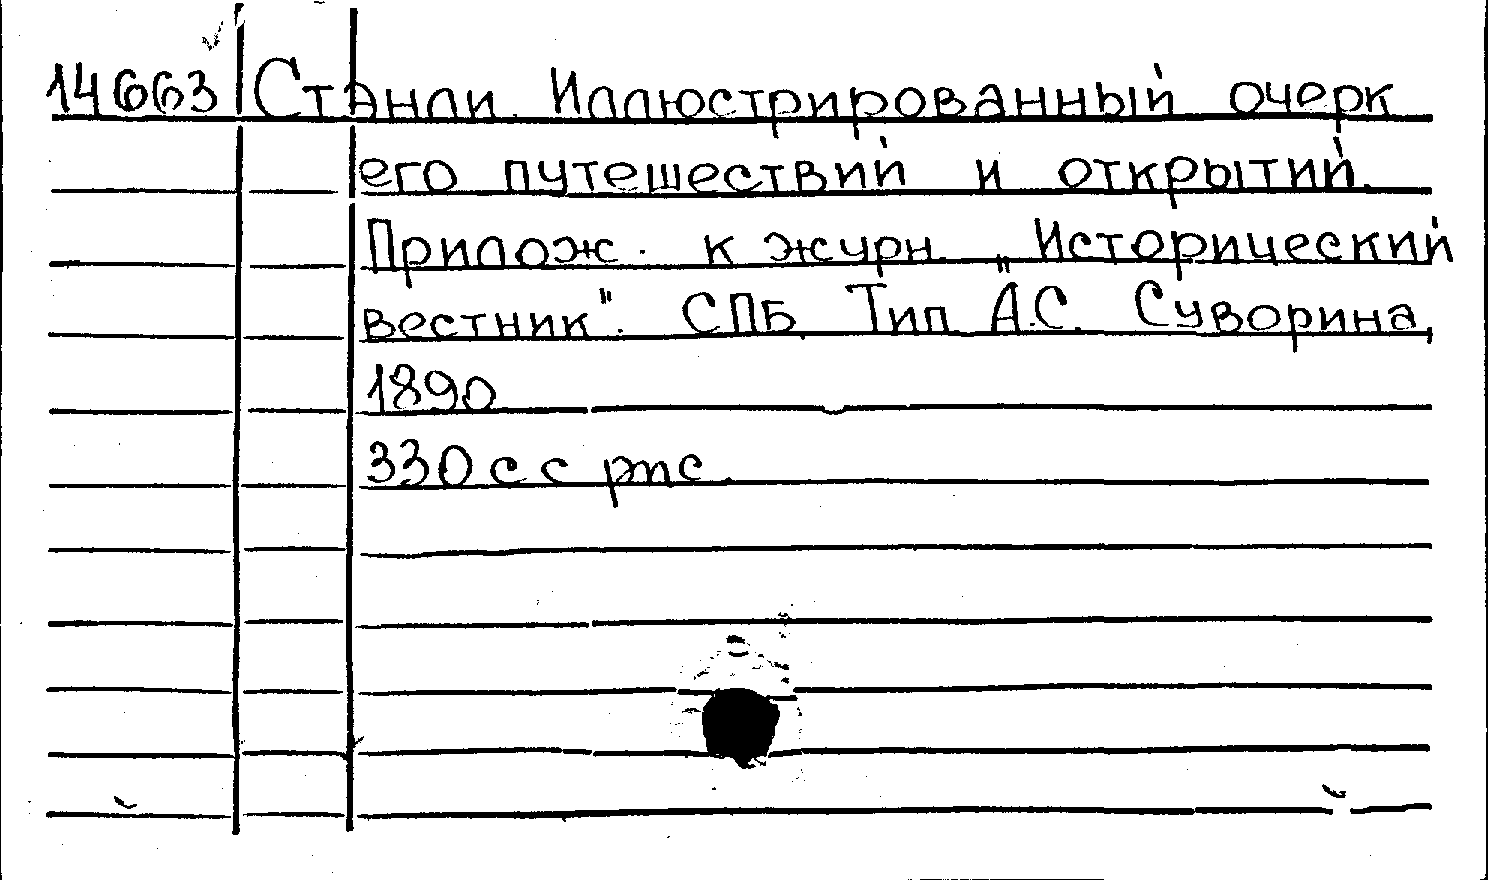 14663 Стэнли. Иллюстрированный очерк
его путешествий и открытий.
Прилож. к журн. „Исторический
вестник". СПБ. Тип. А.С. Суворина,
1890.
330 с с рис.